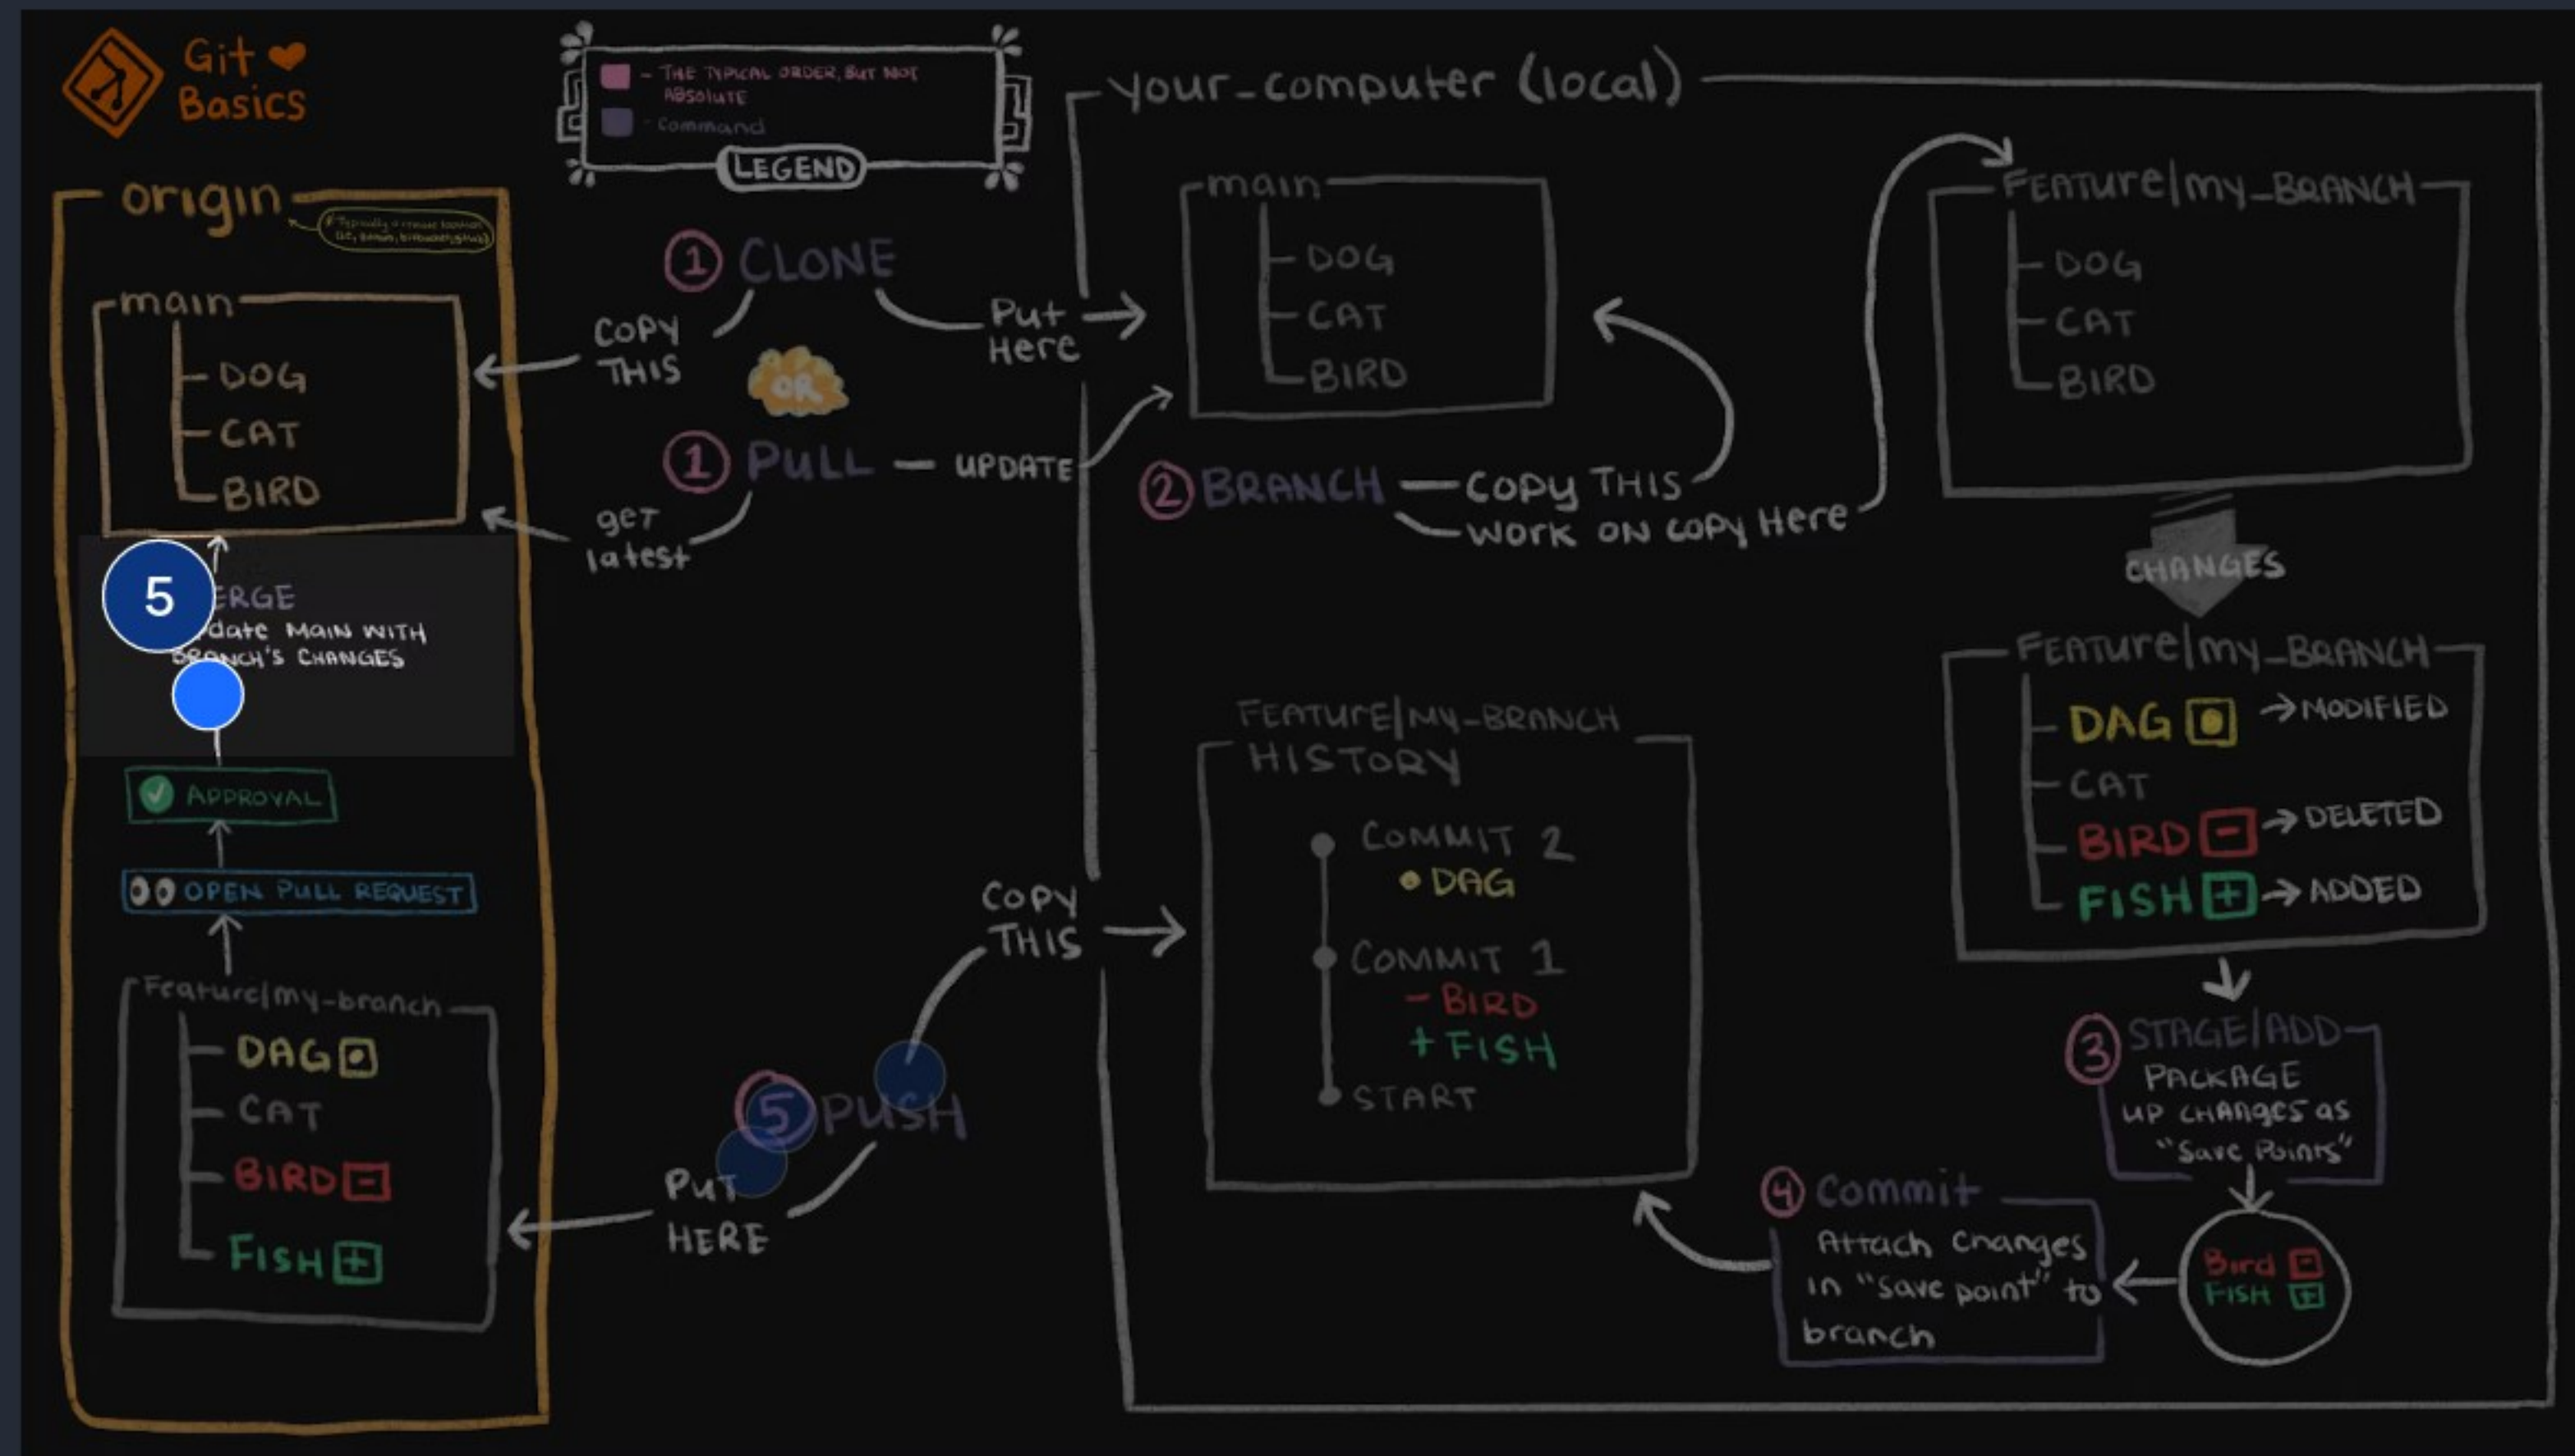 Git
Basics
- THE TYPICAL ORDER, BUT NOT
ABSOLUTE
- Command
LEGEND
origin
* Typically a remote location
main
DOG
CAT
BIRD
5
ERGE
date MAIN WITH
BRANCH'S CHANGES
APPROVAL
OPEN PULL REQUEST
Feature/my-branch
DAG
CAT
BIRD -
FISH +
1 CLONE
COPY
THIS
Put
Here
OR
1 PULL — UPDATE
get
latest
5 PUSH
COPY
THIS
PUT
HERE
your_computer (local)
main
DOG
CAT
BIRD
2 BRANCH — COPY THIS
WORK ON COPY Here
FEATURE/my_BRANCH
DOG
CAT
BIRD
CHANGES
FEATURE/my_BRANCH
DAG → MODIFIED
CAT
BIRD - → DELETED
FISH + → ADDED
3 STAGE/ADD
PACKAGE
UP CHANGES as
"Save Points"
Bird -
FISH +
4 Commit
Attach Changes
in "save point" to
branch
FEATURE/MY-BRANCH
HISTORY
COMMIT 2
• DAG
COMMIT 1
- BIRD
+ FISH
START